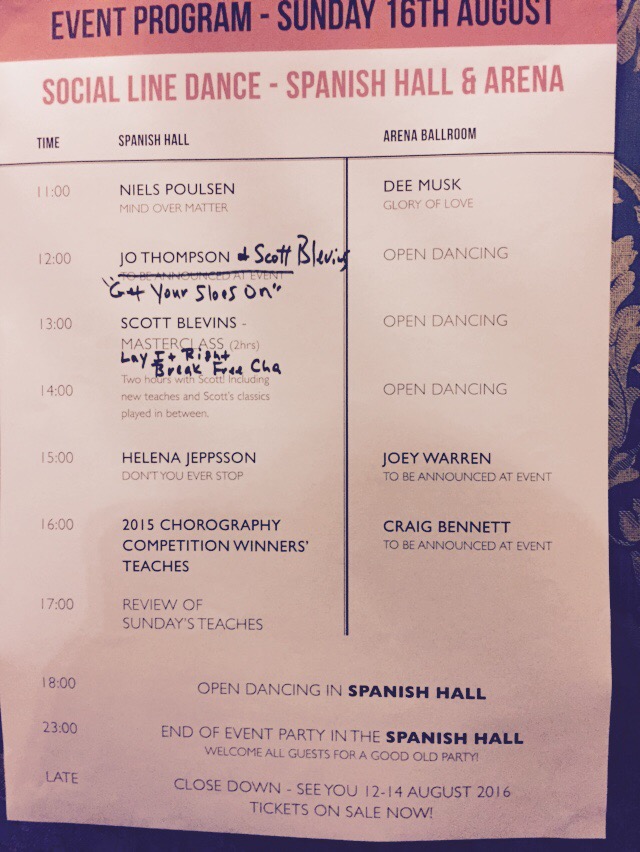 EVENT PROGRAM - SUNDAY 16TH AUGUST
SOCIAL LINE DANCE - SPANISH HALL & ARENA
TIME SPANISH HALL ARENA BALLROOM
11:00 NIELS POULSEN DEE MUSK
MIND OVER MATTER GLORY OF LOVE
12:00 JO THOMPSON & Scott Blevins OPEN DANCING
TO BE ANNOUNCED AT EVENT
"Get Your Sloes On"
13:00 SCOTT BLEVINS - OPEN DANCING
MASTERCLASS (2hrs)
Lay It Right
Break Free Cha
14:00 Two hours with Scott! Including OPEN DANCING
new teaches and Scott's classics
played in between.
15:00 HELENA JEPPSSON JOEY WARREN
DON'T YOU EVER STOP TO BE ANNOUNCED AT EVENT
16:00 2015 CHOROGRAPHY CRAIG BENNETT
COMPETITION WINNERS' TO BE ANNOUNCED AT EVENT
TEACHES
17:00 REVIEW OF
SUNDAY'S TEACHES
18:00 OPEN DANCING IN SPANISH HALL
23:00 END OF EVENT PARTY IN THE SPANISH HALL
WELCOME ALL GUESTS FOR A GOOD OLD PARTY!
LATE CLOSE DOWN - SEE YOU 12-14 AUGUST 2016
TICKETS ON SALE NOW!